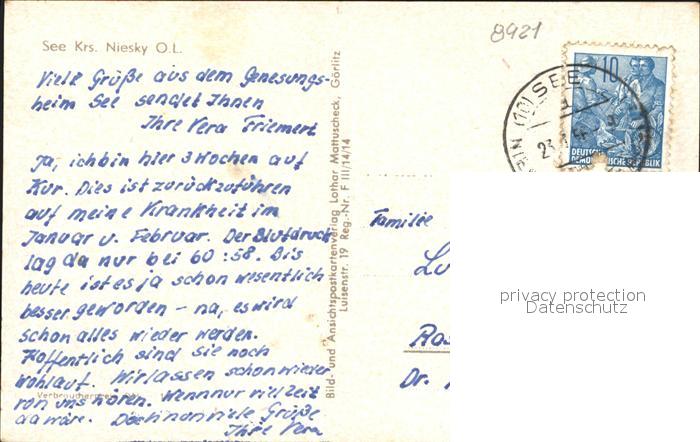 8921
See Krs. Niesky O.L.
Viele Grüße aus dem Genesungs-
heim See sendet Ihnen
Ihre Vera Friemert
Ja, ich bin hier 3 Wochen auf
Kur. Dies ist zurückzuführen
auf meine Krankheit im
Januar u. Februar. Der Blutdruck
lag da nur bei 60 : 58. Bis
heute ist es ja schon wesentlich
besser geworden – na, es wird
schon alles wieder werden.
Hoffentlich sind Sie noch
wohlauf. Wir lassen schon wieder
von uns hören. Wenn nur viel Zeit
da wäre. Doch nun viele Grüße
Ihre Vera
Verbraucherpreis
Bild- und Ansichtspostkartenverlag Lothar Mattuscheck, Görlitz
Luisenstr. 19 Reg.-Nr. F III/14/14
(10) SEE
10
DEUTSCHE
DEMOKRATISCHE REPUBLIK
Familie
Lu
Ros
Dr.
privacy protection
Datenschutz